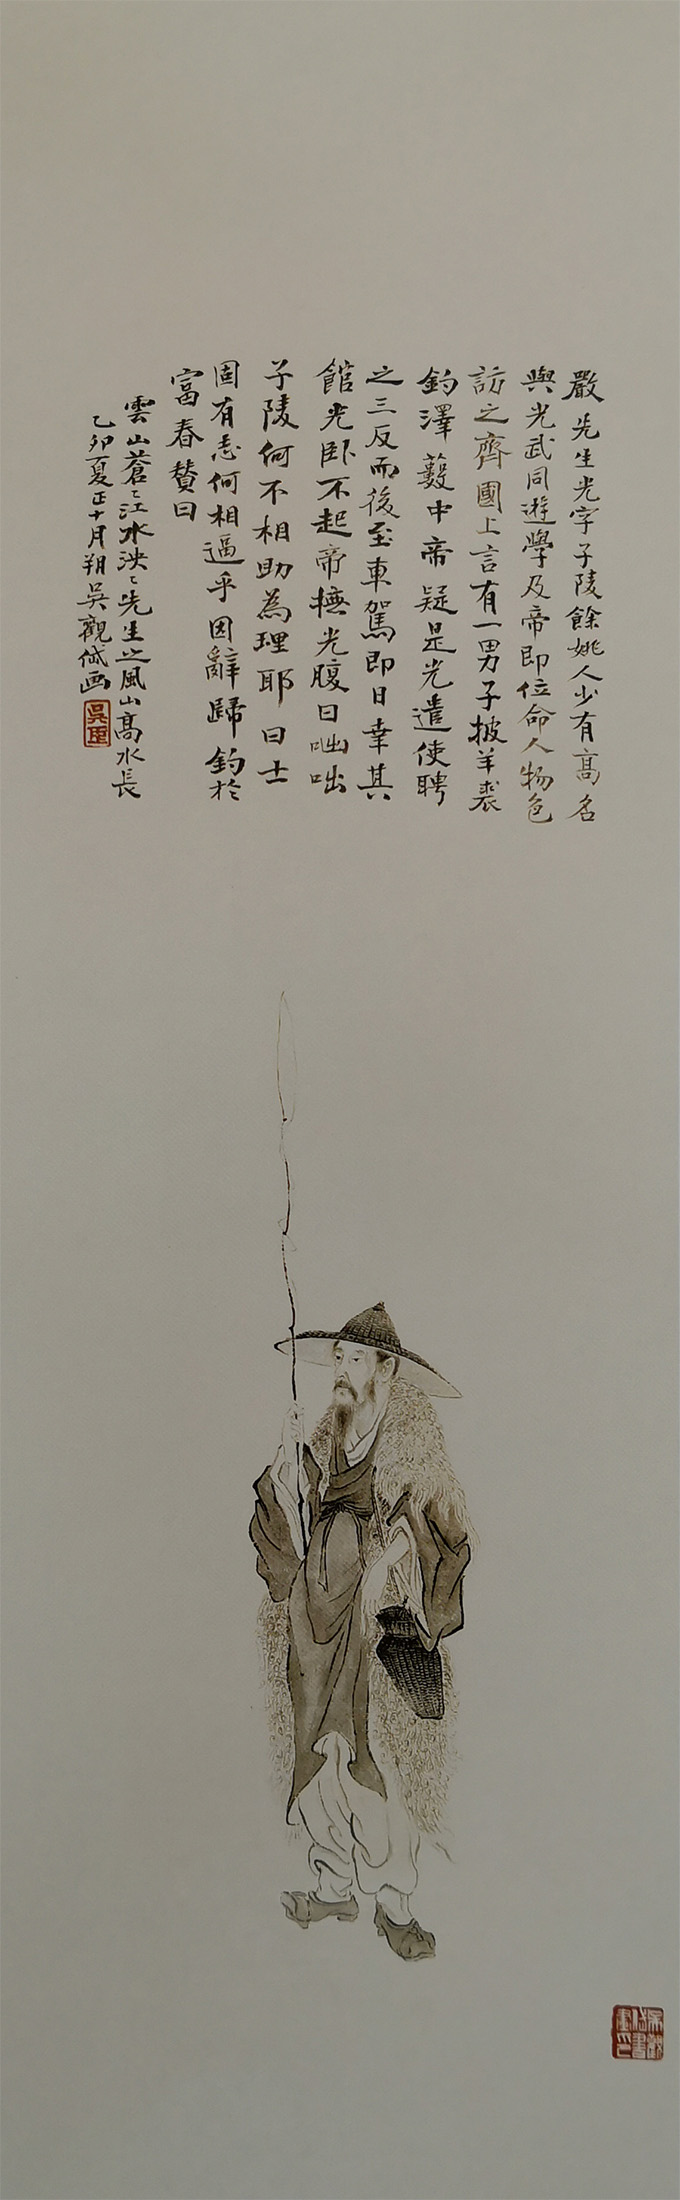 嚴先生光字子陵餘姚人少有高名
與光武同遊學及帝即位命人物色
訪之齊國上言有一男子披羊裘
釣澤藪中帝疑是光遣使聘
之三反而後至車駕即日幸其
館光卧不起帝撫光腹曰咄咄
子陵何不相助為理耶曰士
固有志何相逼乎因辭歸釣於
富春贊曰
雲山蒼〻江水泱〻先生之風山高水長
乙卯夏正十月朔吳觀岱画